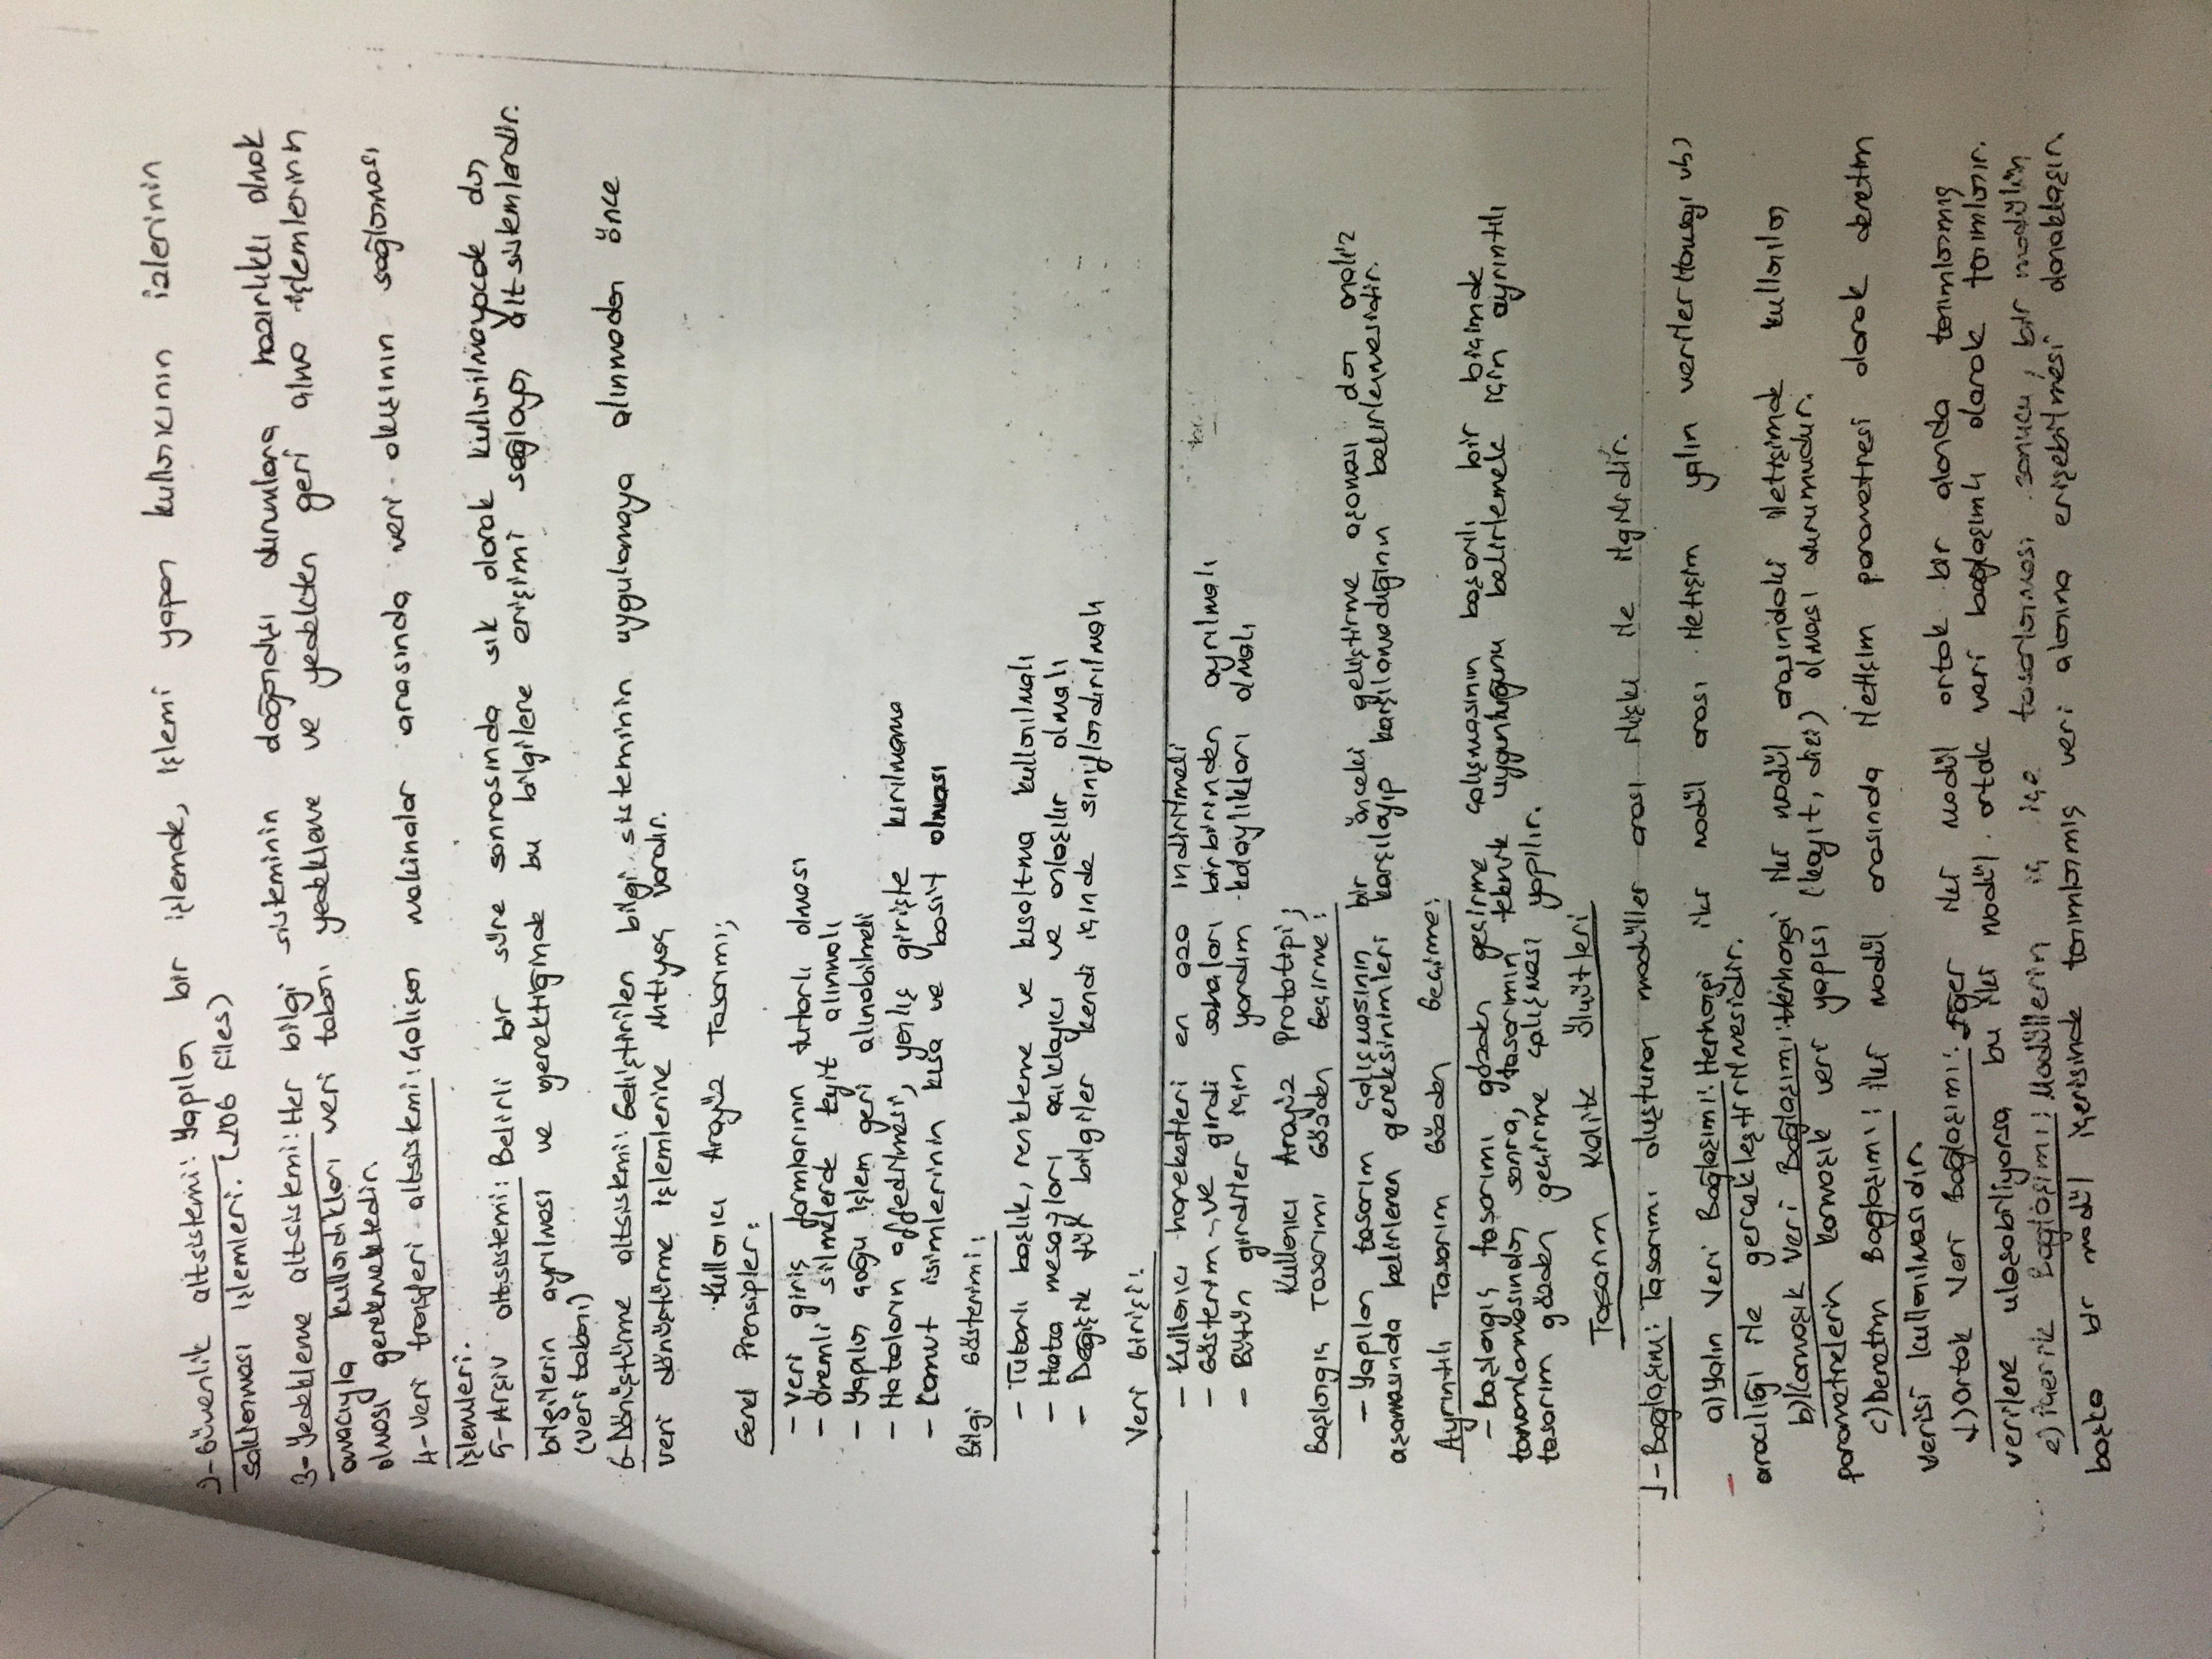 2-Güvenlik altsistemi: Yapılan bir işlemde, işlemi yapan kullanıcının izlerinin
saklanması işlemleri. (LOG Files)
3-Yedekleme altsistemi: Her bilgi sisteminin doğandışı durumlara hazırlıklı olmak
amacıyla kullandıkları veri tabanı yedekleme ve yedekten geri alma işlemlerinin
olması gerekmektedir.
4-Veri transferi altsistemi: Çalışan makinalar arasında veri akışının sağlanması
işlemleri.
5-Arşiv altsistemi: Belirli bir süre sonrasında sık olarak kullanılmayacak olan
bilgilerin ayrılması ve gerektiğinde bu bilgilere erişimi sağlayan altsistemlerdir.
(veri tabanı)
6-Dönüştürme altsistemi: Geliştirilen bilgi sisteminin uygulamaya alınmadan önce
veri dönüştürme işlemlerine ihtiyaç vardır.
Kullanıcı Arayüz Tasarımı;
Genel Prensipler:
- Veri giriş formlarının tutarlı olması
- Önemli silmelerde teyit alınmalı
- Yapılan çoğu işlem geri alınabilmeli
- Hataların affedilmesi, yanlış girişte kırılmama
- Komut isimlerinin kısa ve basit olması
Bilgi Gösterimi:
- Tutarlı başlık, renkleme ve kısaltma kullanılmalı
- Hata mesajları açıklayıcı ve anlaşılır olmalı
- Değişik tür bilgiler kendi içinde sınıflandırılmalı
Veri Girişi:
- Kullanıcı hareketleri en aza indirilmeli
- Gösterim ve girdi sahaları birbirinden ayrılmalı
- Bütün girdiler için yardım kolaylıkları olmalı
Kullanıcı Arayüz Prototipi;
Başlangıç Tasarımı Gözden Geçirme:
- Yapılan tasarım çalışmasının bir önceki geliştirme aşaması olan analiz
aşamasında belirlenen gereksinimleri karşılayıp karşılamadığının belirlenmesidir.
Ayrıntılı Tasarım Gözden Geçirme:
- Başlangıç tasarımı gözden geçirme çalışmasının başarılı bir biçimde
tamamlanmasından sonra, tasarımın teknik uygunluğunu belirlemek için ayrıntılı
tasarım gözden geçirme çalışması yapılır.
Tasarım Kalite Ölçütleri
1-Bağlaşım: Tasarımı oluşturan modüller arası ilişki ile ilgilidir.
a) Yalın Veri Bağlaşımı: Herhangi iki modül arası iletişim yalın veriler (tamsayı vb)
aracılığı ile gerçekleştirilmesidir.
b) Karmaşık Veri Bağlaşımı: Herhangi iki modül arasındaki iletişimde kullanılan
parametrelerin karmaşık veri yapısı (kayıt, dizi) olması durumudur.
c) Denetim Bağlaşımı: İki modül arasında iletişim parametresi olarak denetim
verisi kullanılmasıdır.
d) Ortak Veri Bağlaşımı: Eğer iki modül ortak bir alanda tanımlanmış
verilere ulaşabiliyorsa bu iki modül ortak veri bağlaşımlı olarak tanımlanır.
e) İçerik Bağlaşımı: Modüllerin iç içe tasarlanması sonucu, bir modülün
başka bir modül içerisinde tanımlanmış veri alanına erişebilmesi olanaklaşır.